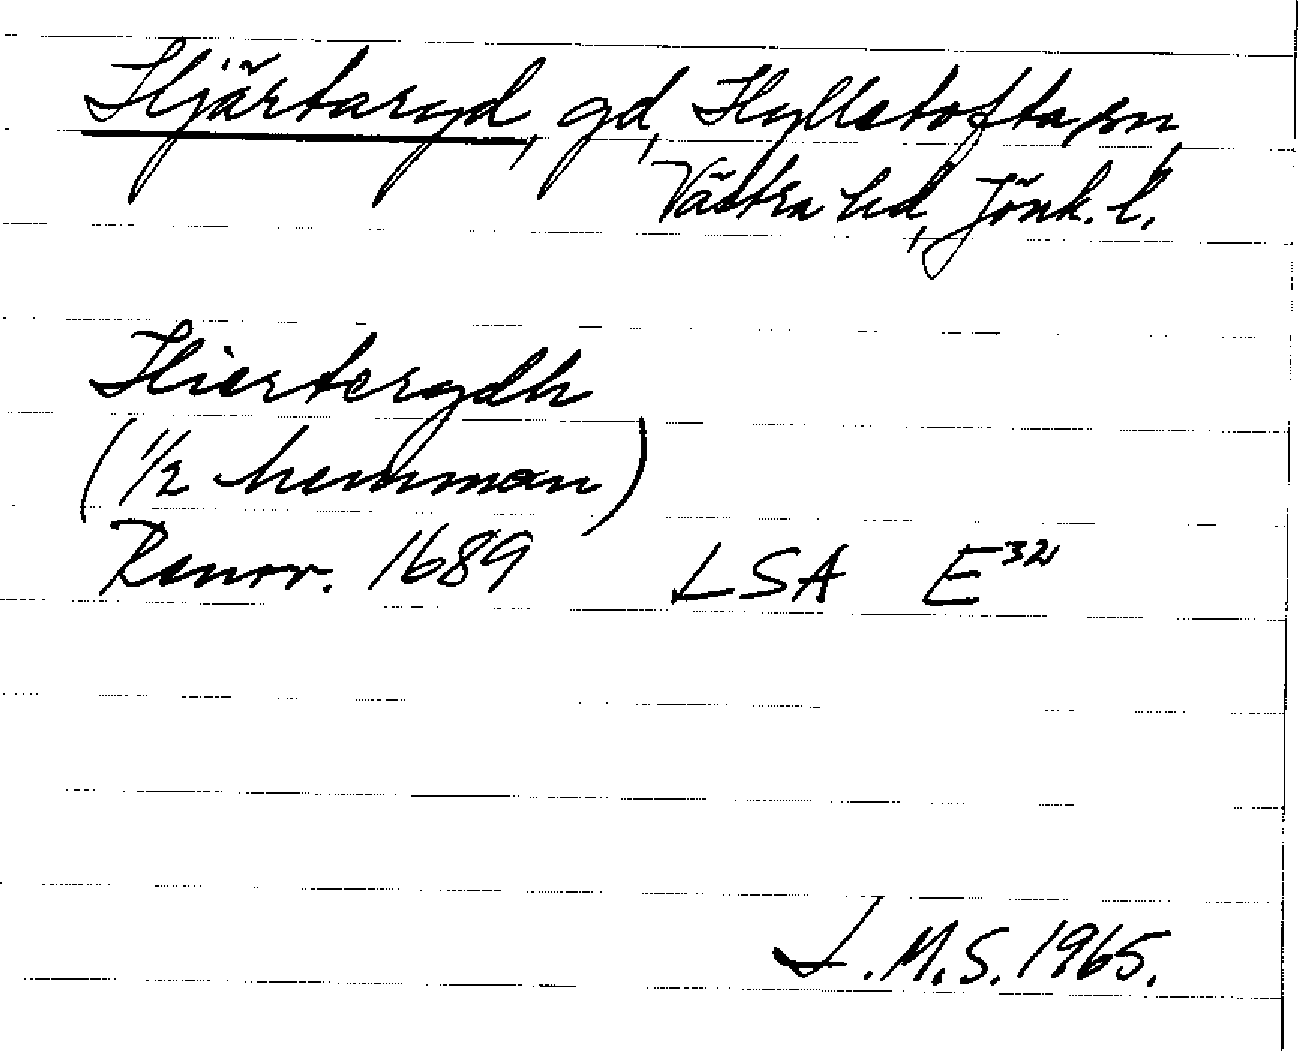 Hjärtaryd, gd, Hyllstofta sn,
Västra hd, Jönk. l.
Hierterydh
(1/2 hemman)
Renov. 1689 LSA E321
I.M.S. 1965.